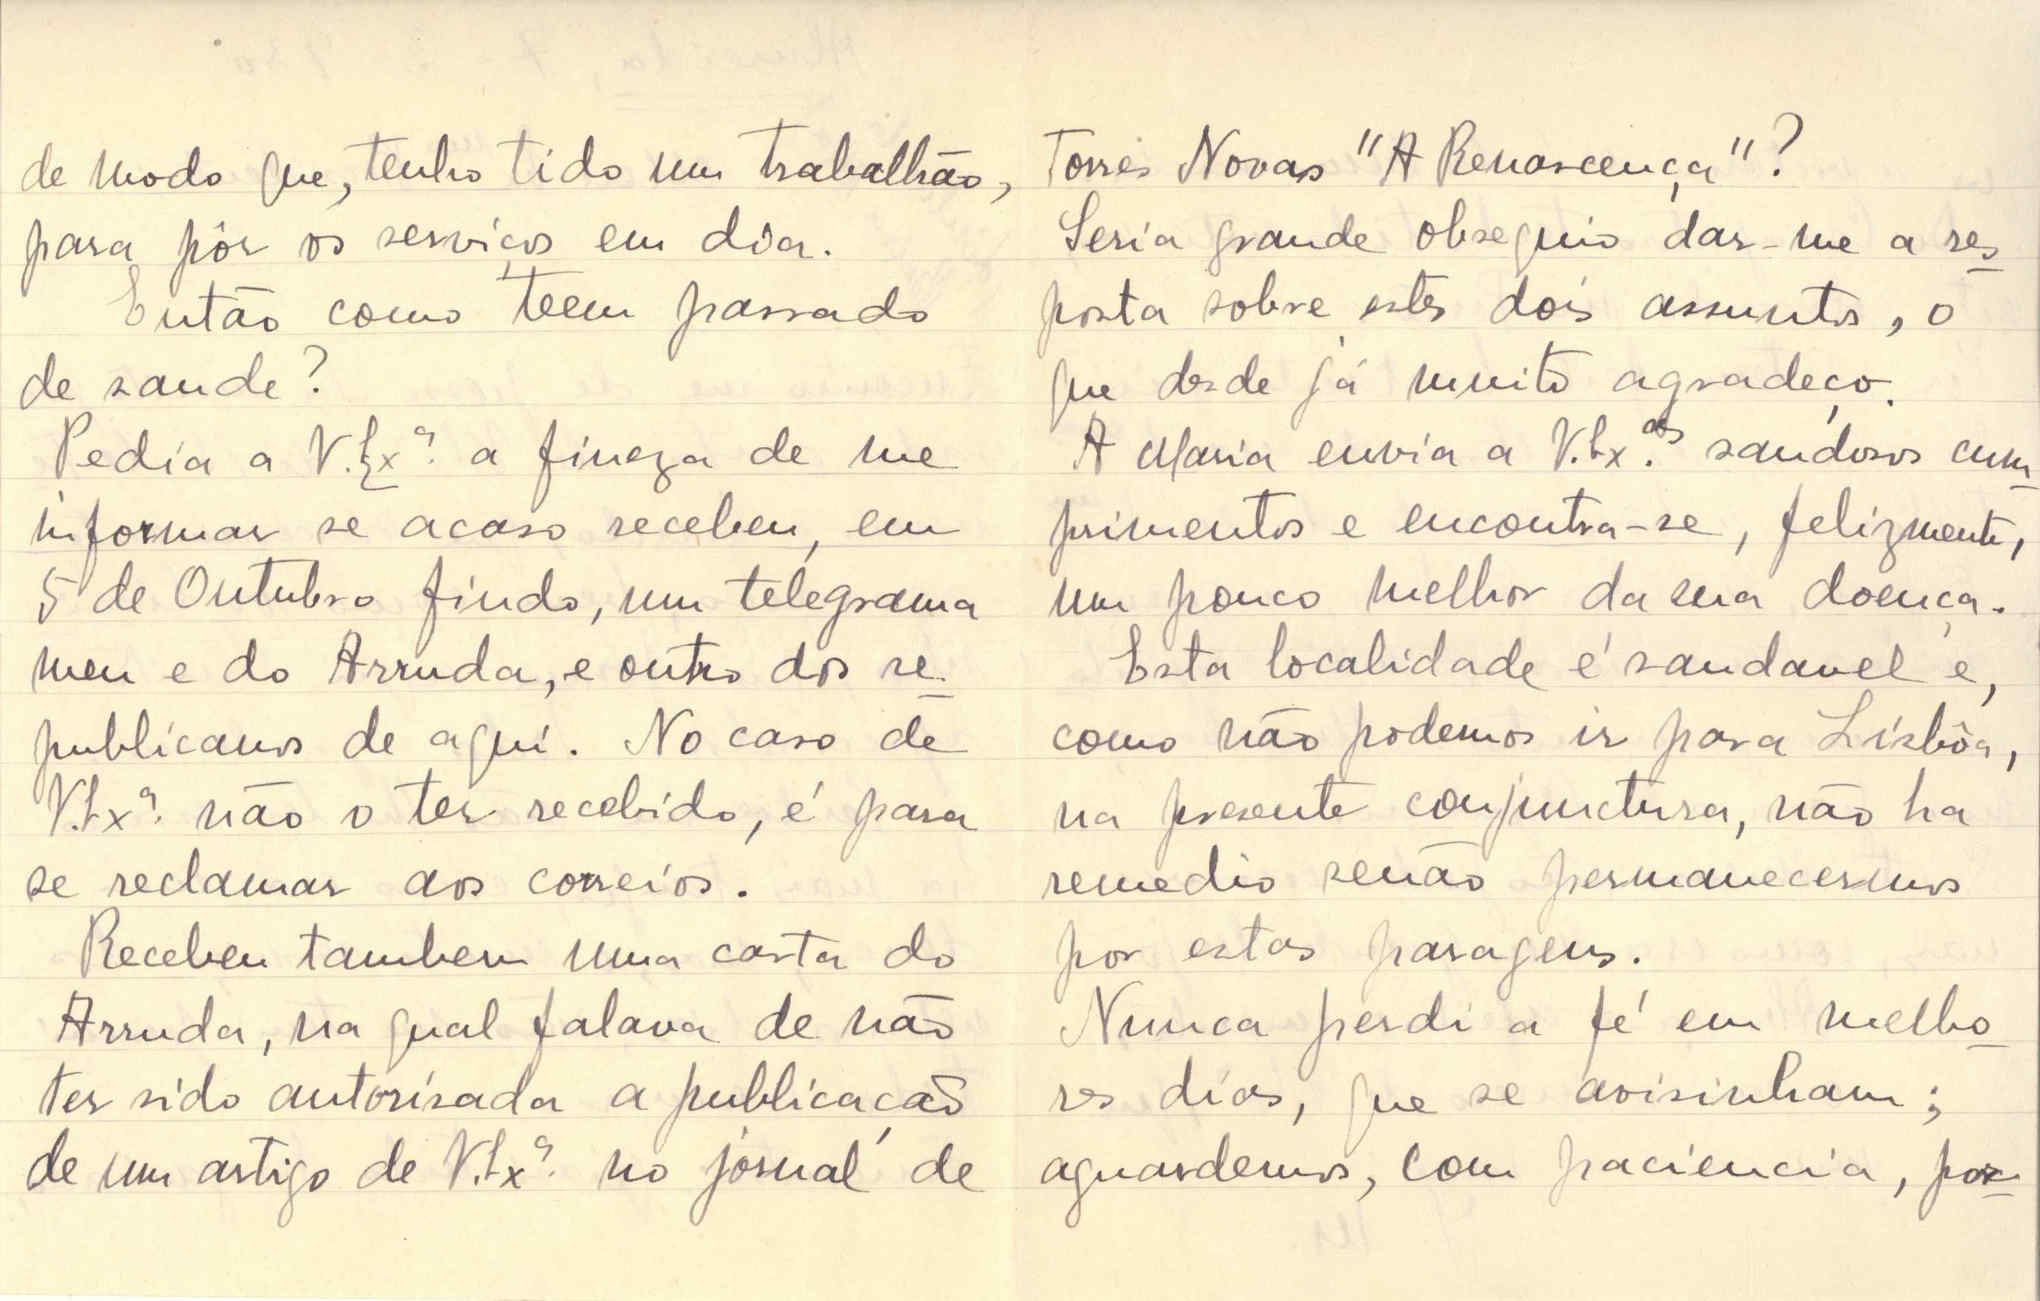 de modo que, tenho tido um trabalhão,
para pôr os serviços em dia.
Então como teem passado
de saude?
Pedia a V. Exª. a fineza de me
informar se acaso recebeu, em
5 de Outubro findo, um telegrama
meu e do Arruda, e outro dos re-
publicanos de aqui. No caso de
V. Exª. não o ter recebido, é para
se reclamar aos correios.
Recebeu tambem uma carta do
Arruda, na qual falava de não
ter sido autorisada a publicação
de um artigo de V. Exª. no jornal de
Torres Novas "A Renascença"?
Seria grande obsequio dar-me a res-
posta sobre estes dois assuntos, o
que desde já muito agradeço.
A Maria envia a V. Ex.ªˢ saudosos cum-
primentos e encontra-se, felizmente,
um pouco melhor da sua doença.
Esta localidade é saudavel e,
como não podemos ir para Lisbôa,
na presente conjunctura, não ha
remedio senão permanecermos
por estas paragens.
Nunca perdi a fé em melho-
res dias, que se avisinham;
aguardemos, com paciencia, por-